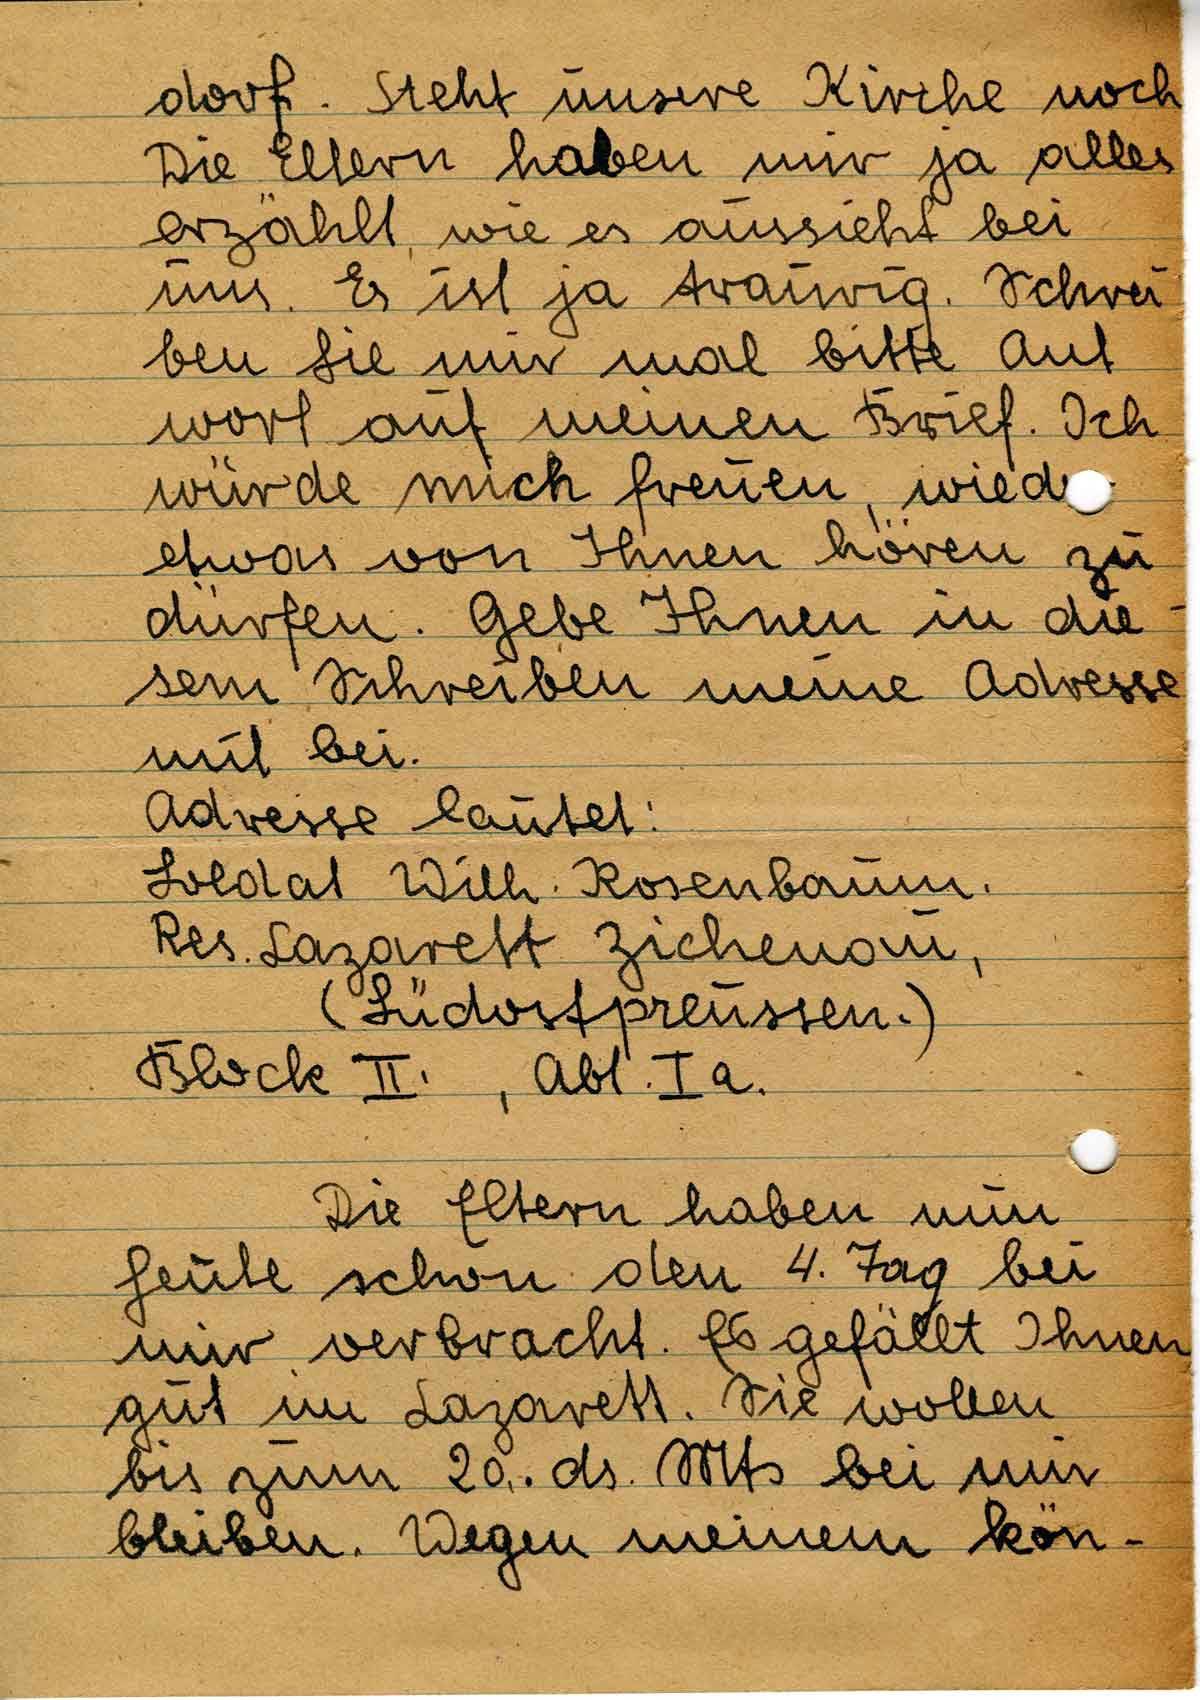 dorf. Steht unsere Kirche noch
Die Eltern haben mir ja alles
erzählt, wie es aussieht bei
uns. Es ist ja traurig. Schrei
ben Sie mir mal bitte Ant
wort auf meinen Brief. Ich
würde mich freuen, wied
etwas von Ihnen hören zu
dürfen. Gebe Ihnen in die-
sem Schreiben meine Adresse
mit bei.
Adresse lautet:
Soldat Wilh. Rosenbaum.
Res. Lazarett Zichenau,
(Südostpreussen.)
Block II. , Abt. Ia.
Die Eltern haben nun
heute schon den 4. Tag bei
mir verbracht. Es gefällt Ihnen
gut im Lazarett. Sie wollen
bis zum 20. ds. Mts bei mir
bleiben. Wegen meinem kön-